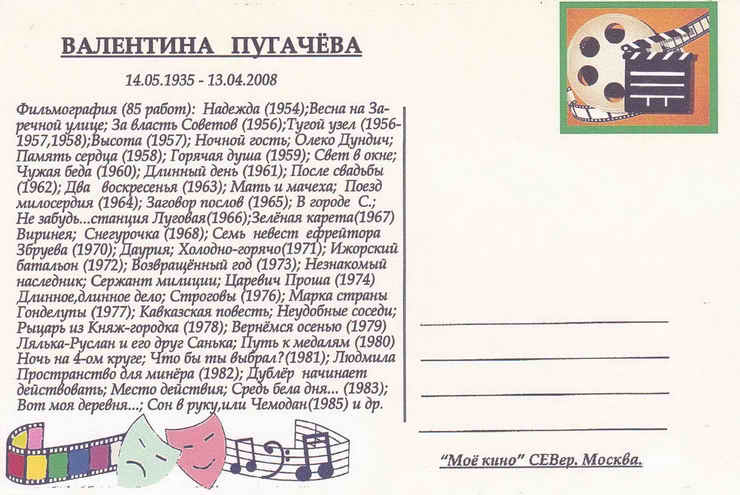 ВАЛЕНТИНА ПУГАЧЁВА
14.05.1935 - 13.04.2008
Фильмография (85 работ): Надежда (1954);Весна на За-
речной улице; За власть Советов (1956);Тугой узел (1956-
1957,1958);Высота (1957); Ночной гость; Олеко Дундич;
Память сердца (1958); Горячая душа (1959); Свет в окне;
Чужая беда (1960); Длинный день (1961); После свадьбы
(1962); Два воскресенья (1963); Мать и мачеха; Поезд
милосердия (1964); Заговор послов (1965); В городе С.;
Не забудь...станция Луговая(1966);Зелёная карета(1967)
Виринея; Снегурочка (1968); Семь невест ефрейтора
Збруева (1970); Даурия; Холодно-горячо(1971); Ижорский
батальон (1972); Возвращённый год (1973); Незнакомый
наследник; Сержант милиции; Царевич Проша (1974)
Длинное,длинное дело; Строговы (1976); Марка страны
Гонделупы (1977); Кавказская повесть; Неудобные соседи;
Рыцарь из Княж-городка (1978); Вернёмся осенью (1979)
Лялька-Руслан и его друг Санька; Путь к медалям (1980)
Ночь на 4-ом круге; Что бы ты выбрал?(1981); Людмила
Пространство для минёра (1982); Дублёр начинает
действовать; Место действия; Средь бела дня... (1983);
Вот моя деревня...; Сон в руку,или Чемодан(1985) и др.
"Моё кино" СЕВер. Москва.